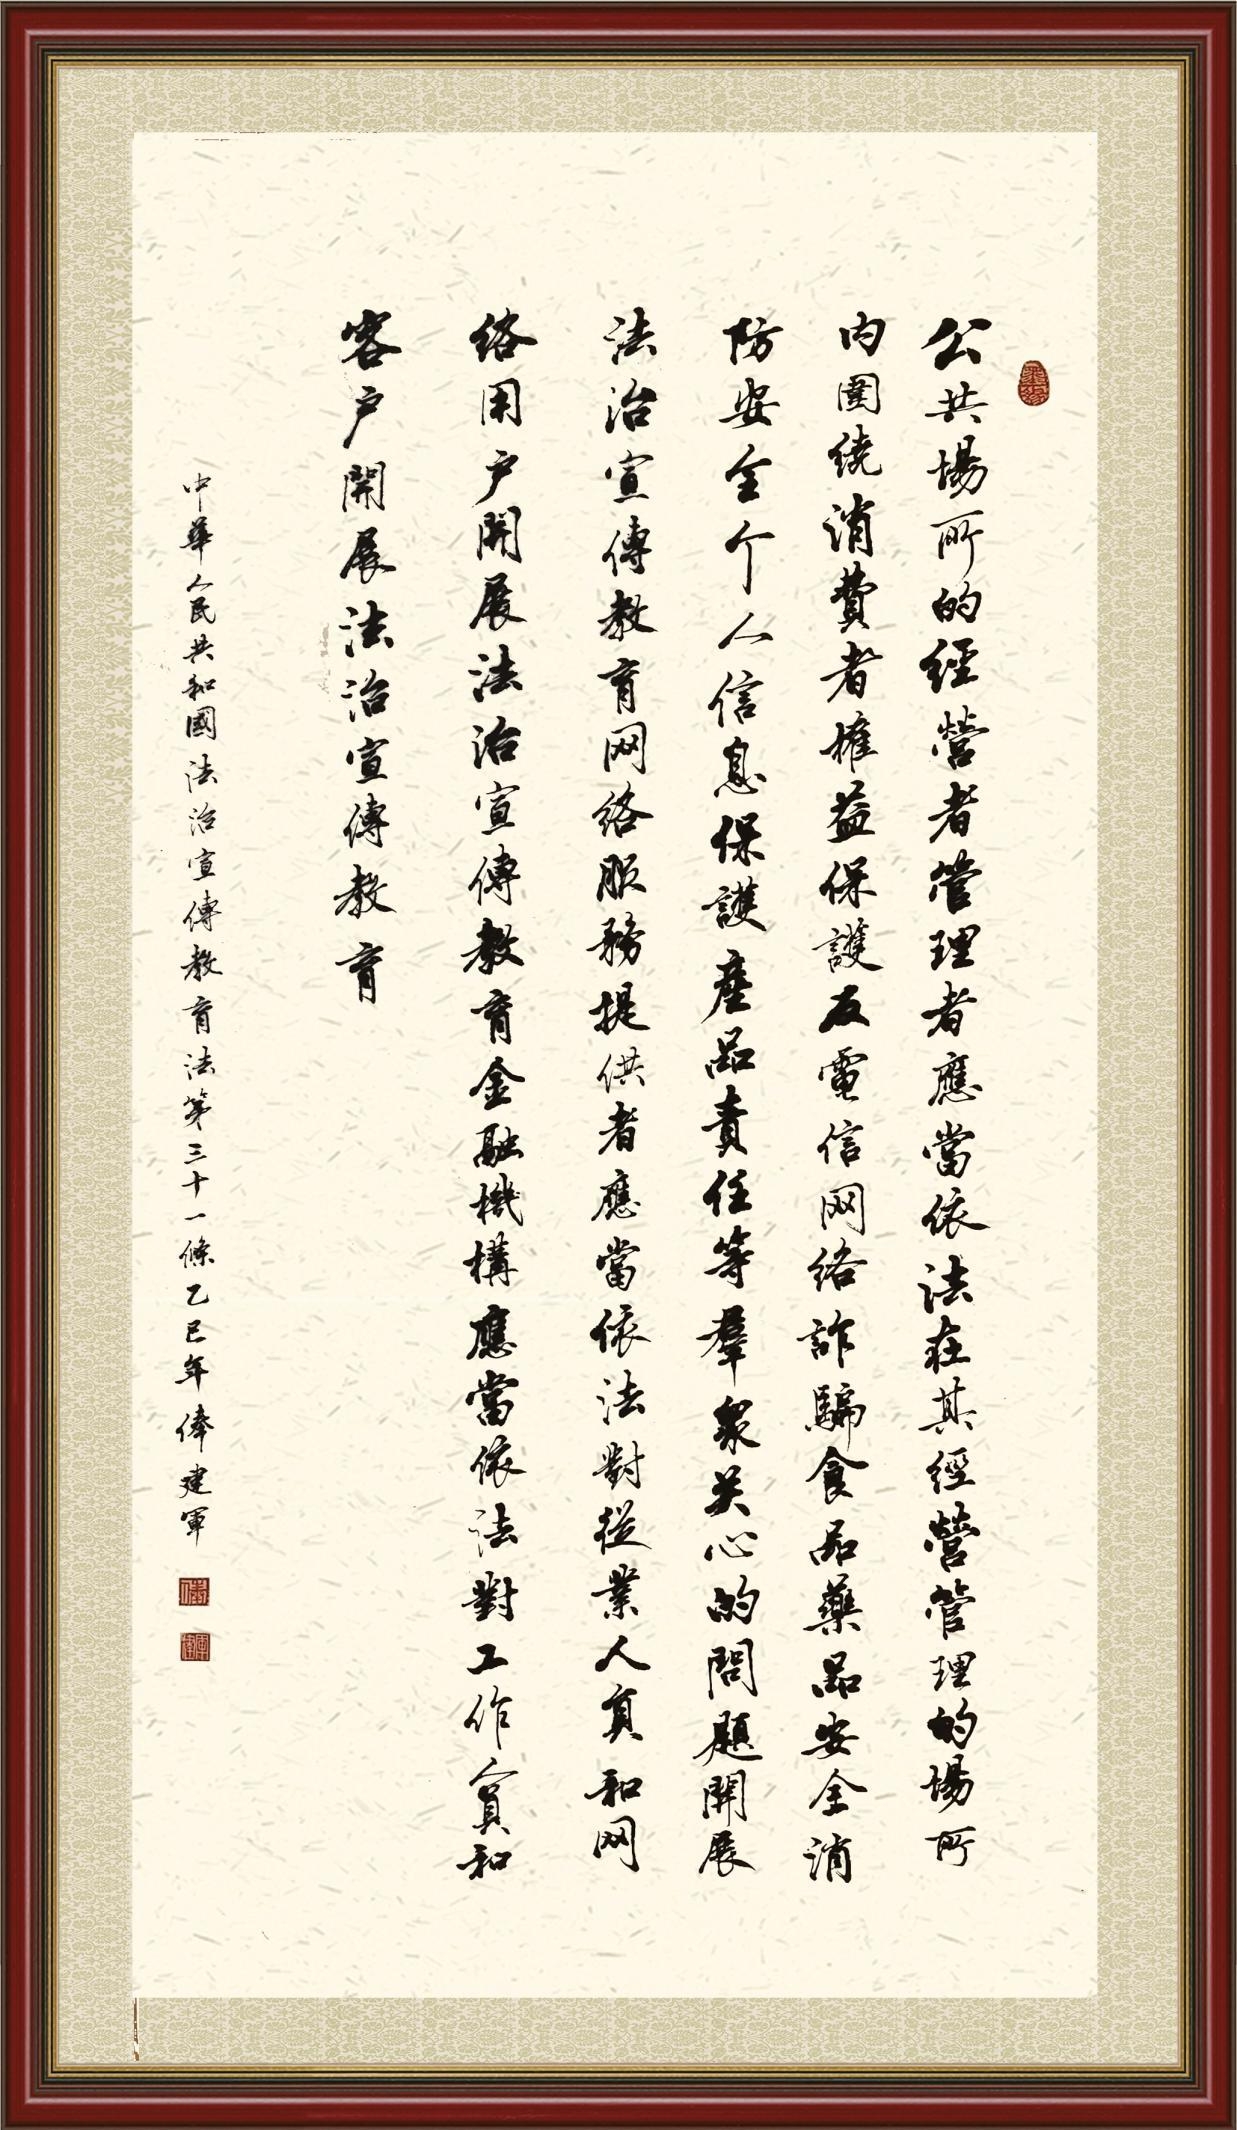 公共場所的經營者管理者應當依法在其經營管理的場所
内圍繞消費者權益保護反電信网络詐騙食品藥品安全消
防安全个人信息保護產品責任等羣衆关心的問題開展
法治宣傳教育网络服務提供者應當依法對從業人員和网
络用户開展法治宣傳教育金融機構應當依法對工作人員和
客户開展法治宣傳教育
中華人民共和國法治宣傳教育法第三十一條乙巳年俸建軍